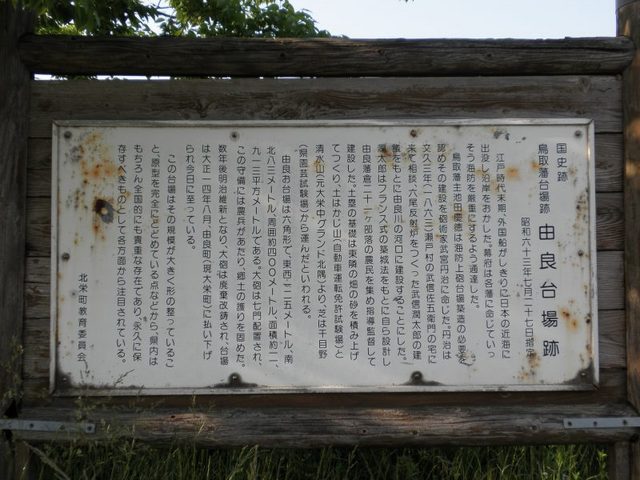 国史跡
鳥取藩台場跡 由良台場跡
昭和六十三年七月二十七日指定
江戸時代末期、外国船がしきりに日本の近海に
出没し沿岸をおかした。幕府は各藩に命じていっ
そう海防を厳重にするよう通達した。
鳥取藩主池田慶徳は海防上砲台場築造の必要を
認めその建設を砲術家武宮丹治に命じた。丹治は
文久三年(一八六三)瀬戸村の武信佐五衛門の宅に
来て相談、六尾反射炉をつくった武信潤太郎の建
策をもとに由良川の河口に建設することにした。
潤太郎はフランス式の築城法をもとに自ら設計し
由良藩倉二十一ヶ部落の農民を集め指導監督して
建設した。土塁の基礎は東隣の畑の砂を積み上げ
てつくり、土はかじ山(自動車運転免許試験場)と
清水山(元大栄中グランド北隅)より、芝は干目野
(県園芸試験場)から運んだといわれる。
由良お台場は六角形で、東西一二五メートル、南
北八三メートル、周囲約四〇〇メートル、面積約一一、
九一三平方メートルである。大砲は七門配置され、
この守備には農兵があたり、郷土の護りを固めた。
数年後明治維新となり、大砲は廃棄改鋳され、台場
は大正一四年八月、由良町(現大栄町)に払い下げ
られ今日に至っている。
この台場はその規模が大きく形の整っているこ
と、原型を完全にとどめている点などから、県内は
もちろん全国的にも貴重な存在であり、永久に保
存すべきものとして各方面から注目されている。
北栄町教育委員会